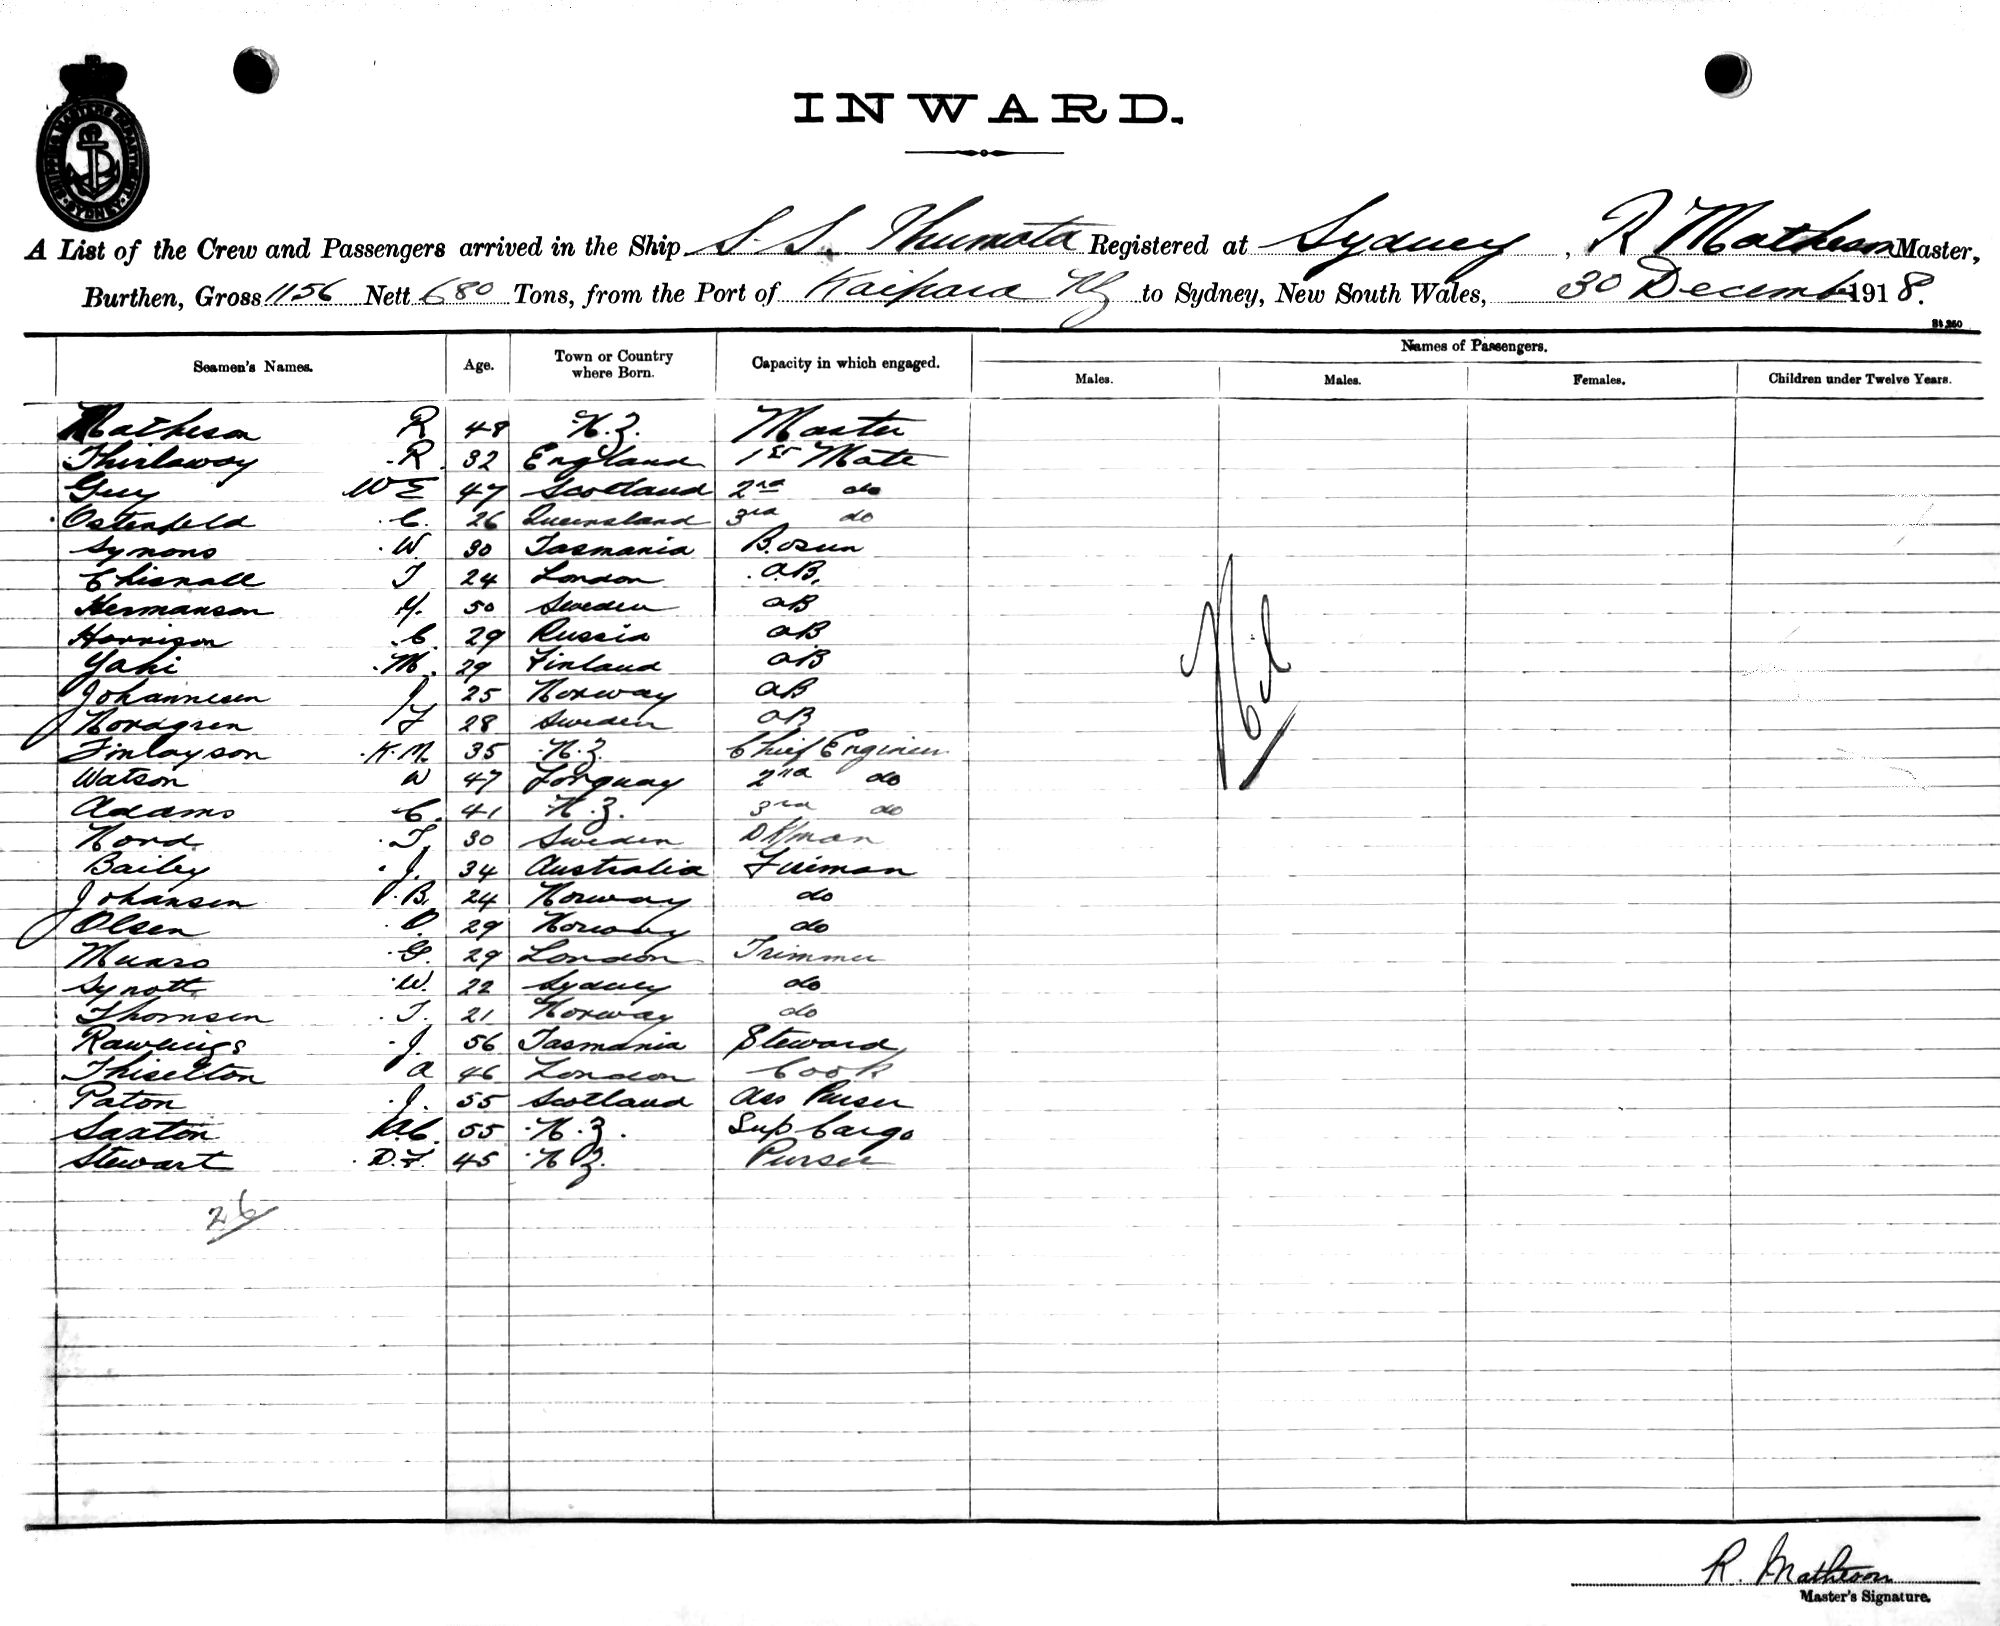 INWARD.
SHIPPING MASTERS DEPARTMENT SYDNEY
A List of the Crew and Passengers arrived in the Ship S. S. Registered at Sydney, R Matheson Master,
Burthen, Gross 1156 Nett 680 Tons, from the Port of Kaipara NZ to Sydney, New South Wales, 30 December 1918.
Seamen's Names. Age. Town or Country where Born. Capacity in which engaged. Names of Passengers.
Males. Males. Females. Children under Twelve Years.
Matheson R 48 N.Z. Master
Thirlaway R 32 England 1st Mate
Guy W E 47 Scotland 2nd do
Ostenfeld C. 26 Queensland 3rd do
Synons W. 30 Tasmania Bosun
Chisnall T 24 London A.B.
Hermanson H. 50 Sweden AB
Harrison C 29 Russia AB
Yaki M. 29 Finland AB
Johannesen J 25 Norway AB
Nordgren F 28 Sweden AB
Finlayson K. M. 35 N.Z. Chief Engineer
Watson W 47 Torquay 2nd do
Adams C. 41 N.Z. 3rd do
Nord T. 30 Sweden DKman
Bailey J. 34 Australia Fireman
Johansen B. 24 Norway do
Olsen O. 29 Norway do
Munro G. 29 London Trimmer
Synott W. 22 Sydney do
Thomsen T. 21 Norway do
Rawlings J. 56 Tasmania Steward
Thiselton A 46 London Cook
Paton J. 55 Scotland Ass Purser
Saxton C. 55 N.Z. Sup Cargo
Stewart D.F. 45 NZ. Purser
Nil
26
R. Matheson
Master's Signature.